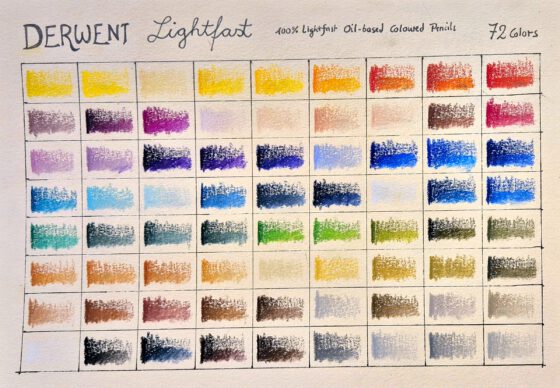 DERWENT Lightfast 100% Lightfast Oil-based Coloured Pencils 72 Colors